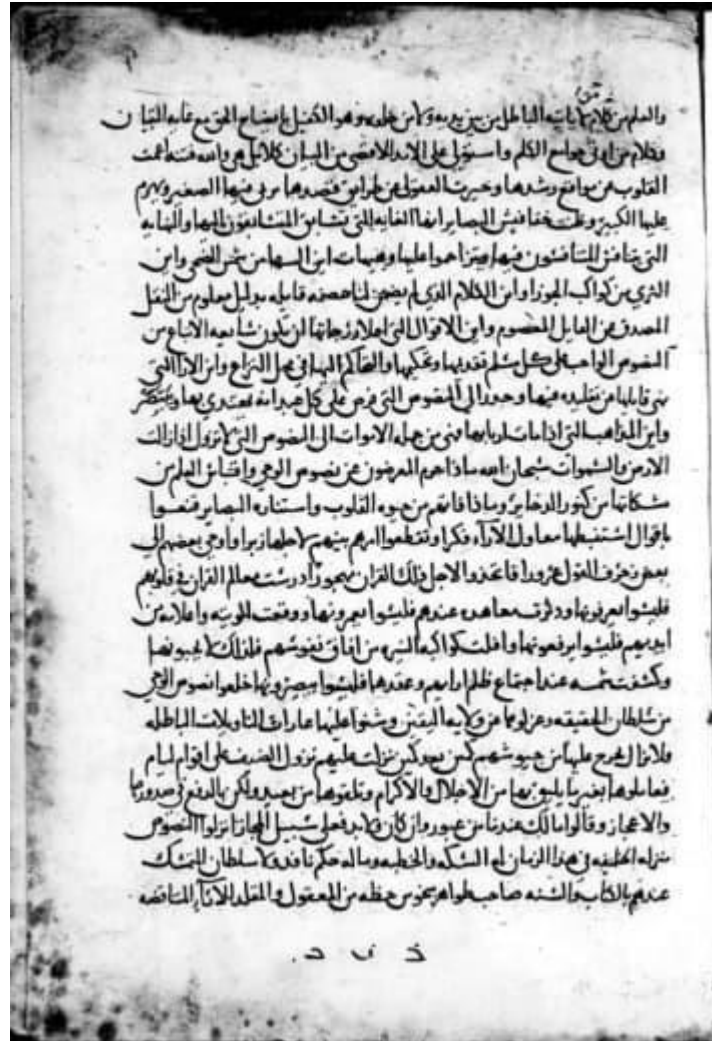 والعلم من كلام لا ياتيه الباطل من بين يديه ولا من خلفه وهو الكفيل بايضاح الحق مع غايه التبيان
وكلام من اوتي جوامع الكلم واستولى على الامد الاقصى من البيان كلا بل هي والله فتنه اعمت
القلوب عن مواقع رشدها وحيرت العقول عن طرايق قصدها يربى فيها الصغير ويهرم
عليها الكبير وظنت خفافيش البصاير انها الغايه التي تسابق المتسابقون اليها والنهايه
التي تنافس المتنافسون فيها وتزاحموا عليها وهيهات اين السها من شمس الضحى واين
الثرى من كواكب الجوزا واين الكلام الذي لم يضمن لنا عصمه قايله بدليل معلوم من النقل
المصدق عن القايل المعصوم واين الاقوال التي اعلا درجاتها ان تكون سايغه الاتباع من
النصوص الواجب على كل مسلم تقديمها وتحكيمها والتحاكم اليها في محل النزاع واين الارا التي
نهى قايلها عن تقليده فيها وحذر الى النصوص التي فرض على كل عبد ان يهتدي بها ويتبصر
واين المذاهب التي اذا مات اربابها فهي من جمله الاموات الى النصوص التي لا تزول اذا زالت
الارض والسموات سبحان الله ماذا حرم المعرضون عن نصوص الوحي واقتباس العلم من
مشكاتها من كنوز الذخاير وماذا فاتهم من حيوه القلوب واستناره البصاير قنعوا
باقوال استنبطها معاول الآراء فكرا وتقطعوا امرهم بينهم لاجلها زبرا واوحى بعضهم الى
بعض زخرف القول غرورا فاتخذوا لاجل ذلك القران مهجورا درست معالم القران في قلوبهم
فليسوا يعرفونها ودثرت معاهده عندهم فليسوا يعمرونها ووقعت الويته واعلامه من
ايديهم فليسوا يرفعونها وافلت كواكبه النيره من افاق نفوسهم فلذلك لا يحبونها
وكسفت شمسه عند اجتماع ظلم ارايهم وعقدها فليسوا يبصرونها خلعوا نصوص الوحي
عن سلطان الحقيقه وعزلوها عن ولايه اليقين وشنوا عليها غارات التاويلات الباطله
ولا يزال يخرج عليها من جيوشهم كمين بعد كمين نزلت عليهم نزول الضيف على اقوام ليام
فعاملوها بغير ما يليق بها من الاجلال والاكرام وتلقوها من بعيد ولكن بالدفع في صدورها
والاعجاز وقالوا ما لك عندنا من عبور وان كان ولابد فعلى سبيل المجاز انزلوا النصوص
منزله الخليفه في هذا الزمان له السكه والخطبه وما له حكم نافذ ولا سلطان المتمسك
عندهم بالكتاب والسنه صاحب ظواهر مبخوس حظه من المعقول والمقلد للآراء المتناقضه